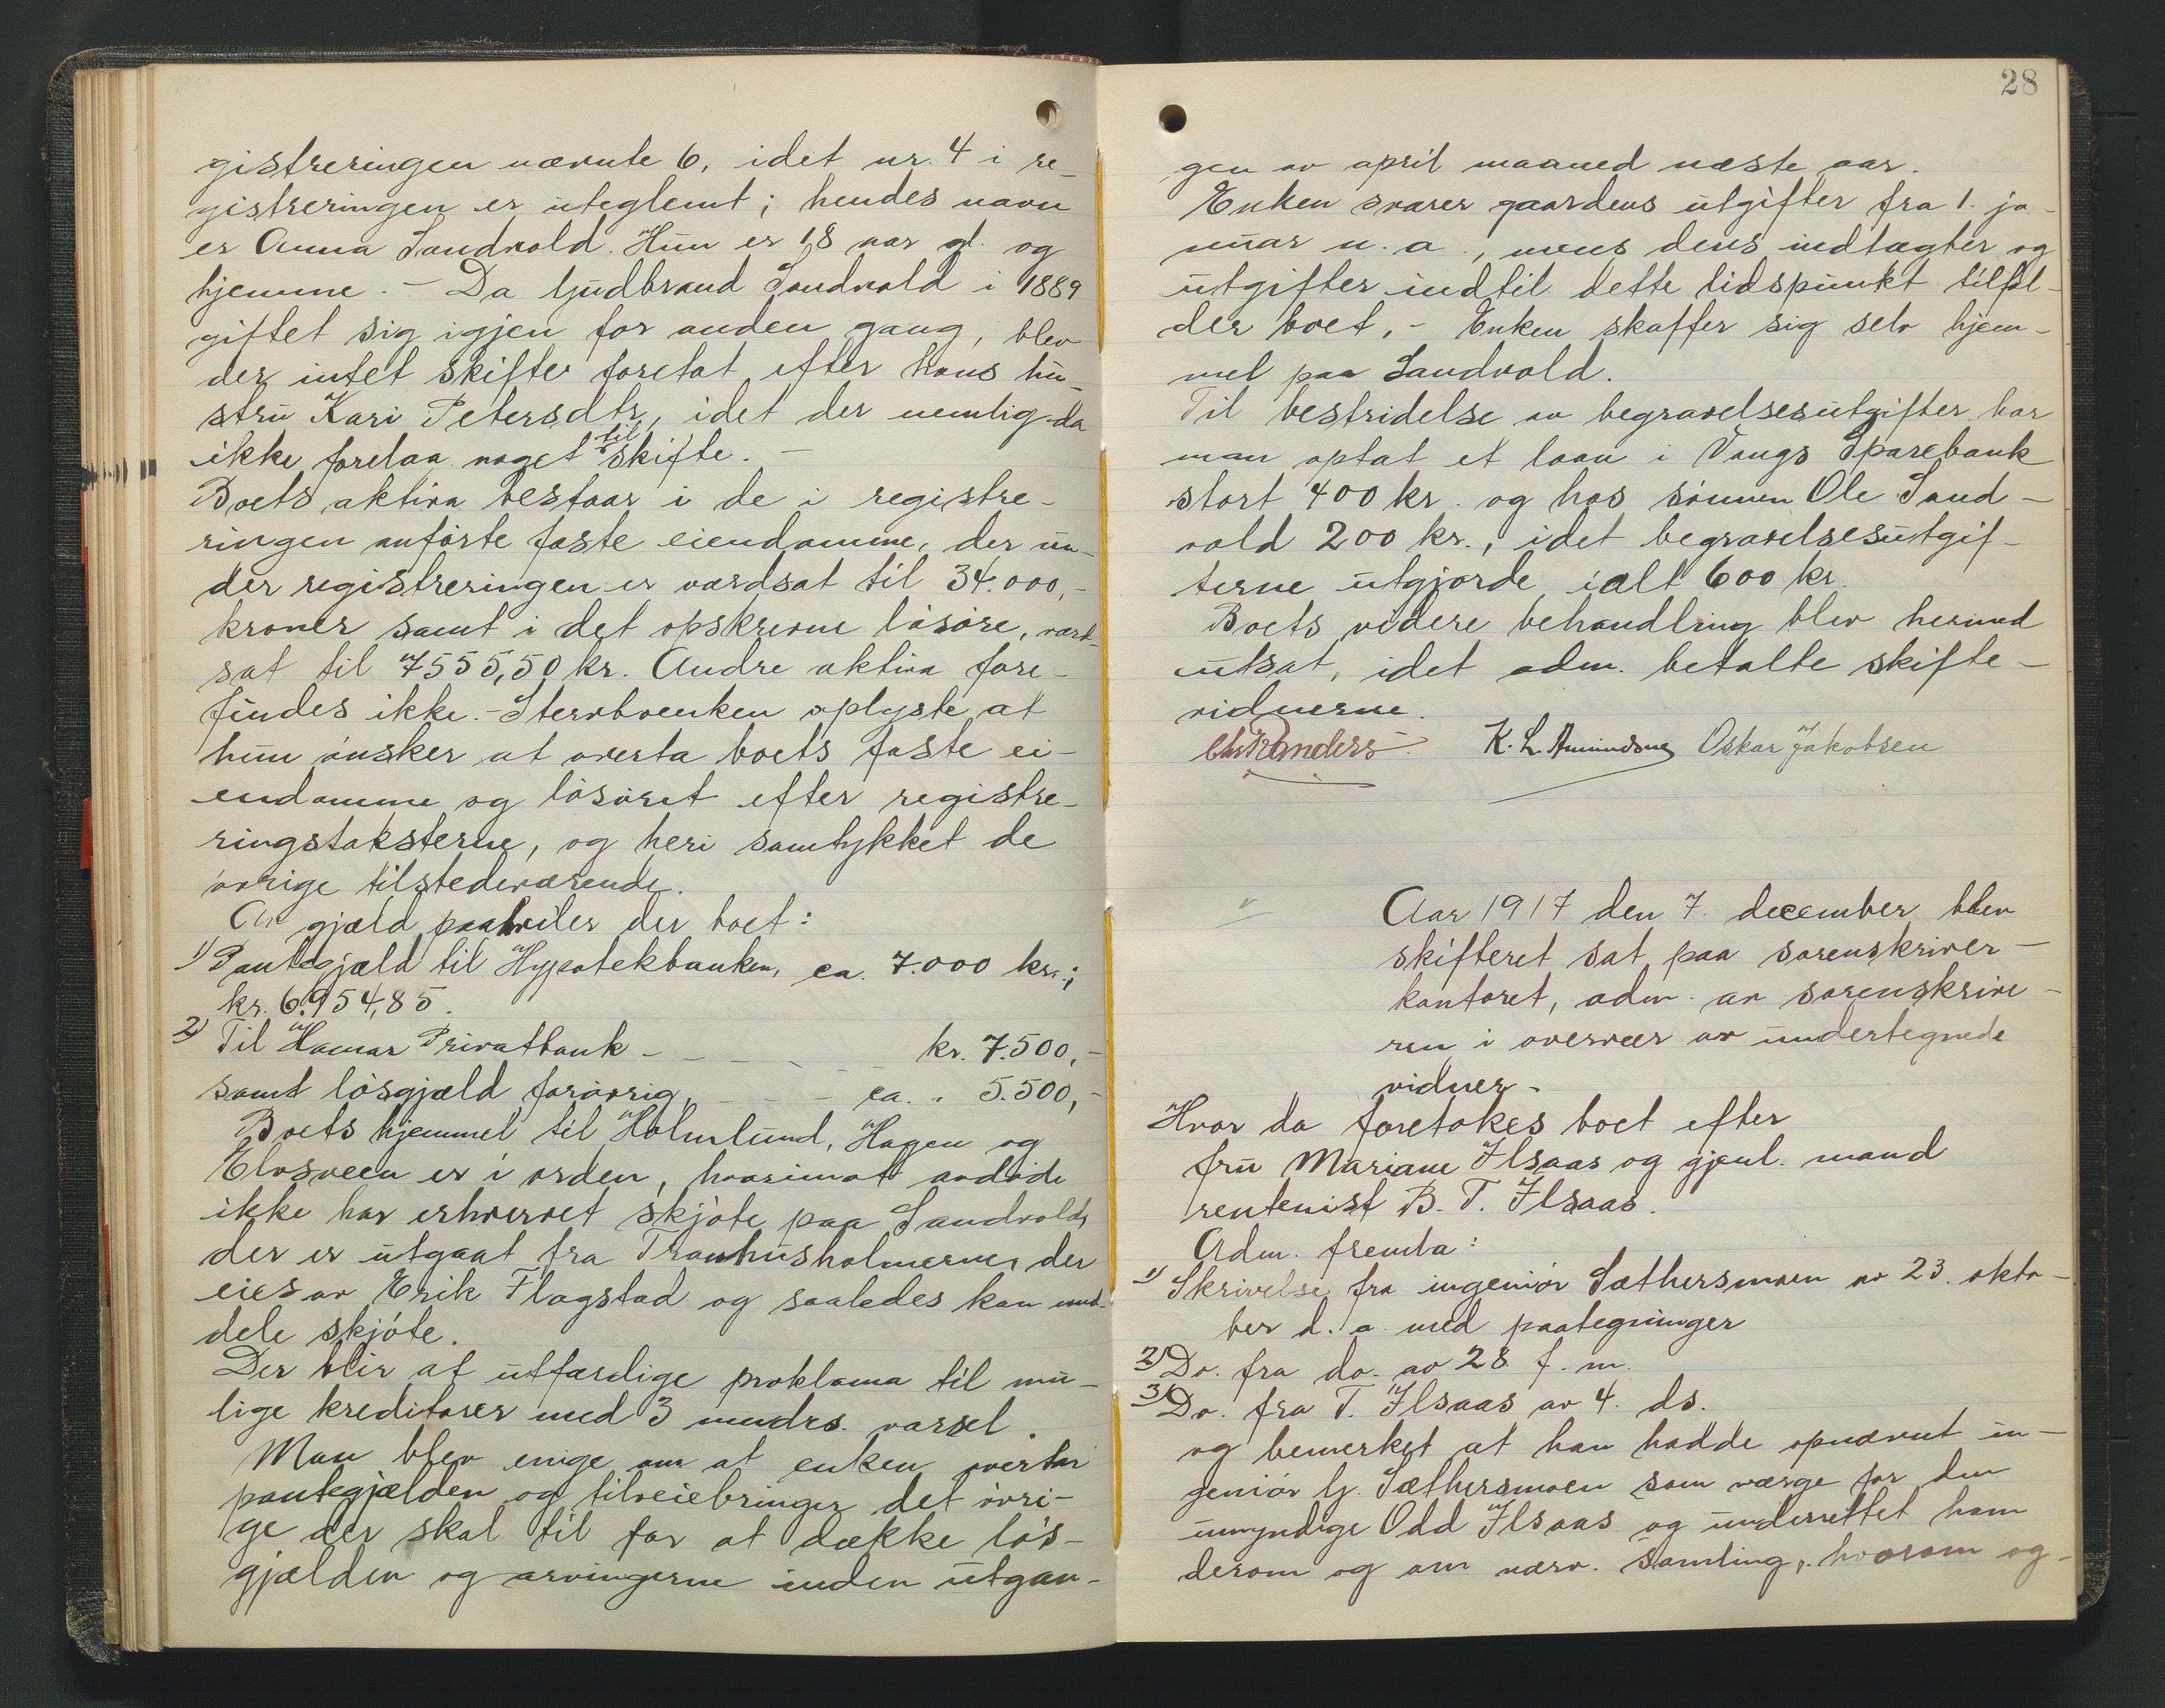 gistreringen nævnte 6, idet nr. 4 i re-
gistreringen er uteglemt; hendes navn
er Anna Sandvold. Hun er 18 aar gl. og
hjemme. - Da Gudbrand Sandvold i 1889
giftet sig igjen for anden gang, blev
der intet skifte foretat efter hans hu-
stru Kari Petersdtr, idet der nemlig da
ikke forelaa noget til skifte. -
Boets aktiva bestaar i de i registre-
ringen anførte faste eiendomme, der un-
der registreringen er værdsat til 34.000,-
kroner samt i det opskrevne løsøre, værd-
sat til 7555,50 kr. Andre aktiva fore-
findes ikke. - Stervboenken oplyste at
hun ønsker at overta boets faste ei-
endomme og løsøret efter registre-
ringstaksterne, og heri samtykket de
øvrige tilstedeværende.
Av gjæld paahviler der boet:
1) Pantegjæld til Hypotekbanken, ca. 7.000 kr.;
kr. 6.954,85.
2) Til Hamar Privatbank - - - - kr. 7.500,-
samt løsgjæld forøvrig, - - - ca. " 5.500,-
Boets hjemmel til Holmlund, Hagen og
Elvsveen er i orden, hvorimot avdøde
ikke har erhvervet skjøte paa Sandvold,
der er utgaat fra Tranhusholmerne, der
eies av Erik Flagstad og saaledes kan med-
dele skjøte.
Der blir at utfærdige proklama til mu-
lige kreditorer med 3 mndrs. varsel.
Man blev enige om at enken overtar
pantegjælden og tilveiebringer det øvri-
ge der skal til for at dække løs-
gjælden og arvingerne inden utgan-
28
gen av april maaned næste aar.
Enken svarer gaardens utgifter fra 1. ja-
nuar n. a., mens dens indtægter og
utgifter indtil dette tidspunkt tilfal-
der boet, - Enken skaffer sig selv hjem-
mel paa Sandvold.
Til bestridelse av begravelsesutgifter har
man optat et laan i Vangs Sparebank
stort 400 kr. og hos sønnen Ole Sand-
vold 200 kr., idet begravelsesutgif-
terne utgjorde ialt 600 kr.
Boets videre behandling blev hermed
utsat, idet adm. betalte skifte-
vidnerne.
Chr Randers. K. L. Amundsen Oskar Jakobsen
Aar 1917 den 7. december blev
skifteret sat paa sorenskriver-
kontoret, adm. av sorenskrive-
ren i overvær av undertegnede
vidner.
Hvor da foretokes boet efter
fru Mariane Ilsaas og gjenl. mand
rentenist B. T. Ilsaas.
Adm. fremla:
1) Skrivelse fra ingeniør Sæthersmoen av 23. okto-
ber d. a. med paategninger
2) Do. fra do. av 28. f. m.
3) Do. fra T. Ilsaas av 4. ds.
og bemerket at han hadde opnævnt in-
geniør G. Sæthersmoen som værge for den
umyndige Odd Ilsaas og underrettet ham
derom og om nærv. samling, hvorom og-